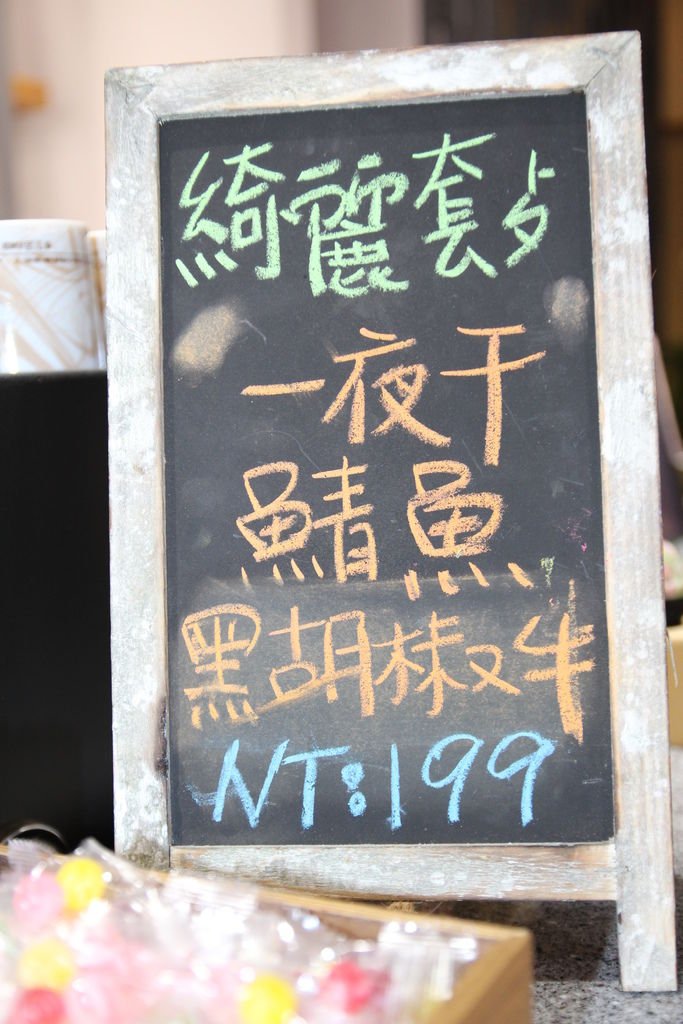 綺麗套歺
一夜干
鯖魚
黑胡椒牛
NT:199